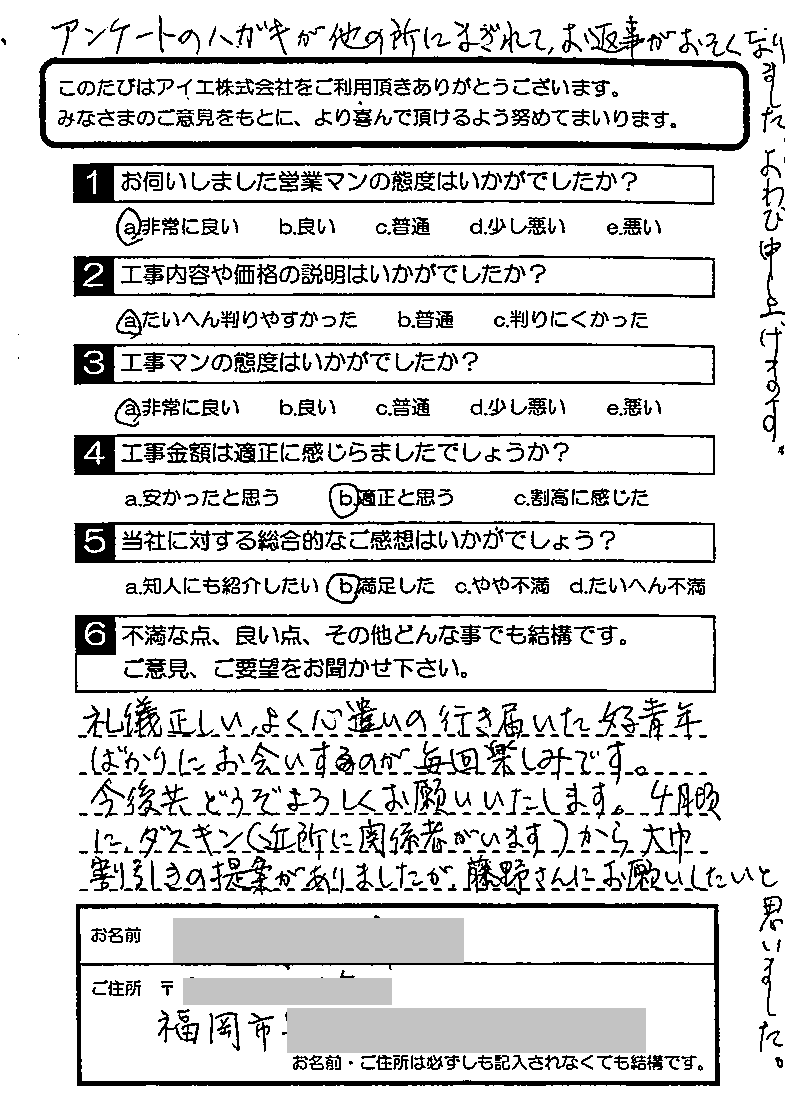 アンケートのハガキが他の所にまぎれて、お返事がおそくなり
ました。おわび申し上げます。
このたびはアイエ株式会社をご利用頂きありがとうございます。
みなさまのご意見をもとに、より喜んで頂けるよう努めてまいります。
1 お伺いしました営業マンの態度はいかがでしたか？
a.非常に良い b.良い c.普通 d.少し悪い e.悪い
2 工事内容や価格の説明はいかがでしたか？
a.たいへん判りやすかった b.普通 c.判りにくかった
3 工事マンの態度はいかがでしたか？
a.非常に良い b.良い c.普通 d.少し悪い e.悪い
4 工事金額は適正に感じらましたでしょうか？
a.安かったと思う b.適正と思う c.割高に感じた
5 当社に対する総合的なご感想はいかがでしょう？
a.知人にも紹介したい b.満足した c.やや不満 d.たいへん不満
6 不満な点、良い点、その他どんな事でも結構です。
ご意見、ご要望をお聞かせ下さい。
礼儀正しい、よく心遣いの行き届いた好青年
ばかりにお会いするのが毎回楽しみです。
今後共どうぞよろしくお願いいたします。4月頃
に、ダスキン(近所に関係者がいます)から大巾
割引きの提案がありましたが、藤野さんにお願いしたいと
思いました。
お名前
ご住所 〒
福岡市
お名前・ご住所は必ずしも記入されなくても結構です。